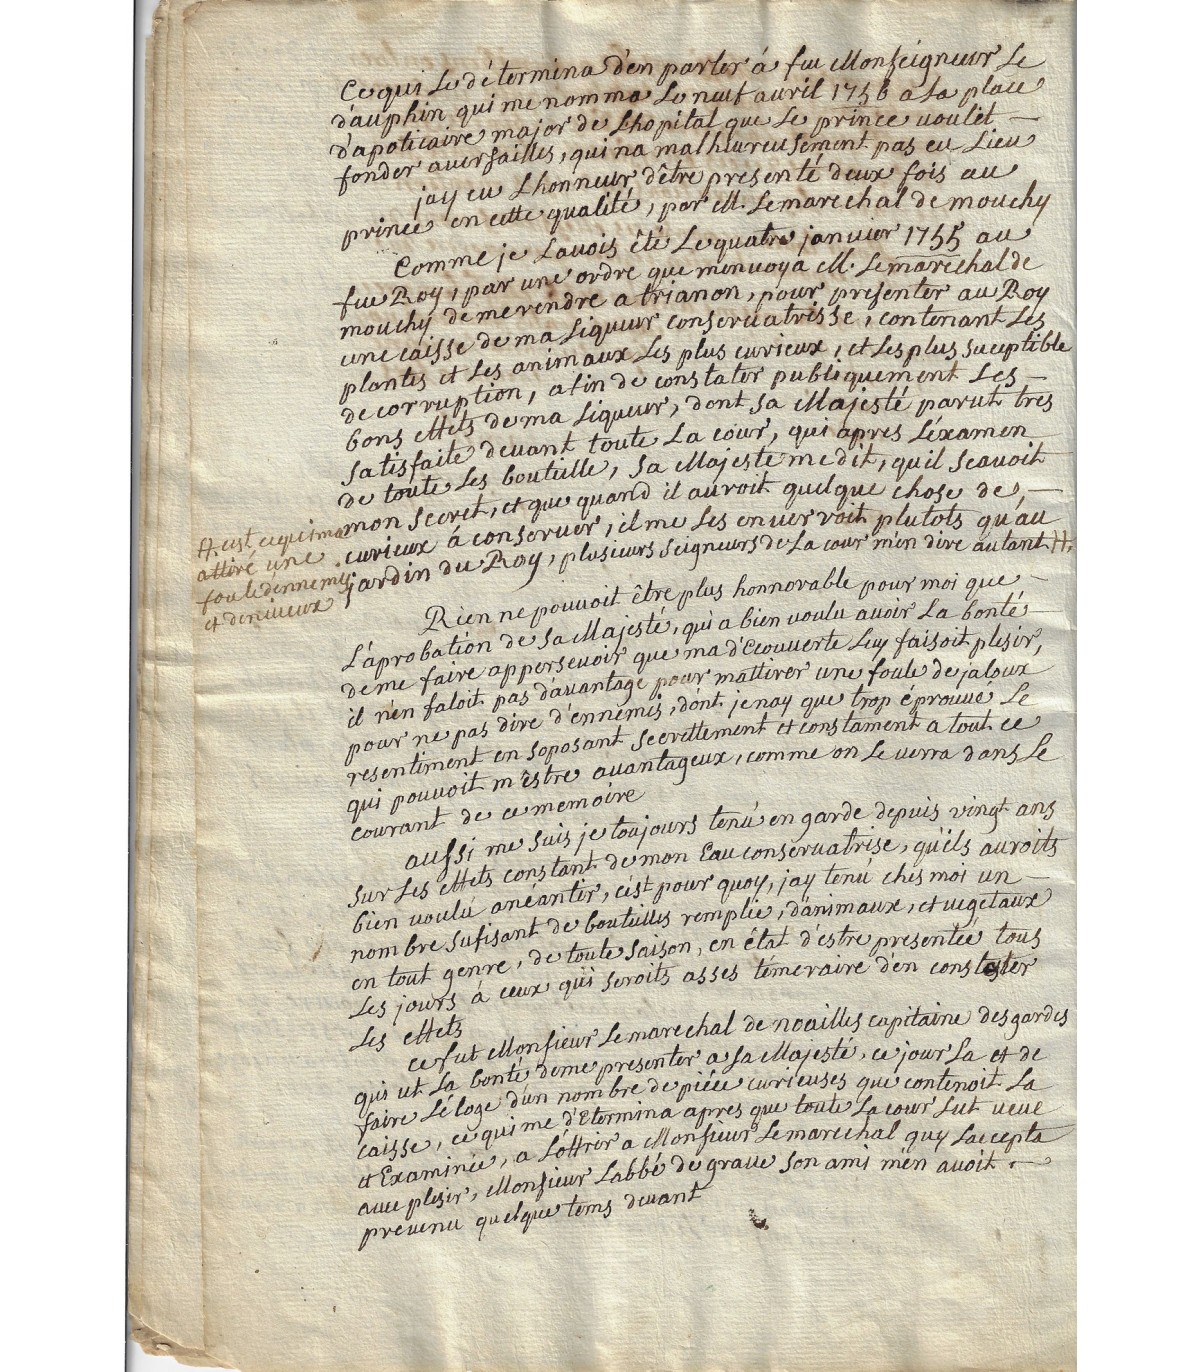 Ce qui Le détermina d'en parler á feu Monseigneur Le
dauphin qui me nomma Le neuf auril 1756 a La place
d'apoticaire major de Lhopital que Le prince voulèt —
fonder a versailles, qui na malheureusement pas eu Lieu
jay eu Lhonneur d'être presenté deux fois au
prince en cette qualité, par M. Le marechal de mouchy
Comme je Lauois été Le quatre januier 1755 au
feu Roy, par une ordre que m'enuoya M. Le maréchal de
mouchy de me rendre a trianon, pour présenter au Roy
une caisse de ma Liqueur conseruatrisse, contenant Les
plantes et Les animaux Les plus curieux, et Les plus suceptible
de corruption, afin de constater publiquement Les —
bons effets de ma Liqueur, dont sa Majesté parut tres
satisfaite deuant toute La cour, qui apres L'éxamen
de toute Les bouteille, sa Majeste me dit, qu'il scauoit
mon secret, et que quand il auroit quelque chose de, —
curieux á conseruer, il me Les enuerroit plutots qu'au
jardin du Roy, plusieurs seigneurs de La cour m'en dire autant #.
#. c'est ce qui ma
attiré une
foule dennemis
et denuieux
Rien ne pouuoit être plus honnorable pour moi que —
L'aprobation de Sa Majesté, qui a bien voulu auoir La bonté —
de me faire apperseuoir que ma d'Ecouuerte Luy faisoit plesir,
il n'en faloit pas d'auantage pour m'attirer une foule de jaloux
pour ne pas dire d'ennemis, dont je nay que trop éprouué Le
resentiment en soposant secrettement et constament a tout ce
qui pouuoit m'êstre auantageux, comme on Le uerra dans Le
courant de ce memoire
aussi me suis je toujours tenú en garde depuis vingt ans
sur Les effets constant de mon Eau conseruatrise, qu'ils auroits
bien voulú anéantir, c'est pour quoy, jay tenú chés moi un —
nombre sufisant de bouteilles remplie, d'animaux, et uegetaux
en tout genre, de toute saison, en état d'estre presentée tous
Les jours á ceux qui seroits asses témeraire d'en constater
Les effets
ce fut Monsieur Le marechal de noailles capitaine des gardes
qui ut La bonté de me presenter a Sa Majesté, ce jour La et de
faire L'éloge d'un nombre de piéce curieuses que contenoit La
caisse, ce qui me d'Etermina apres que toute La cour Lut ueue
et Examinée, a L'offrir a Monsieur Le marechal quy Laccepta
auec plesir, Monsieur L'abbé de graue son ami m'en auoit. —
preuenu quelque tems deuant